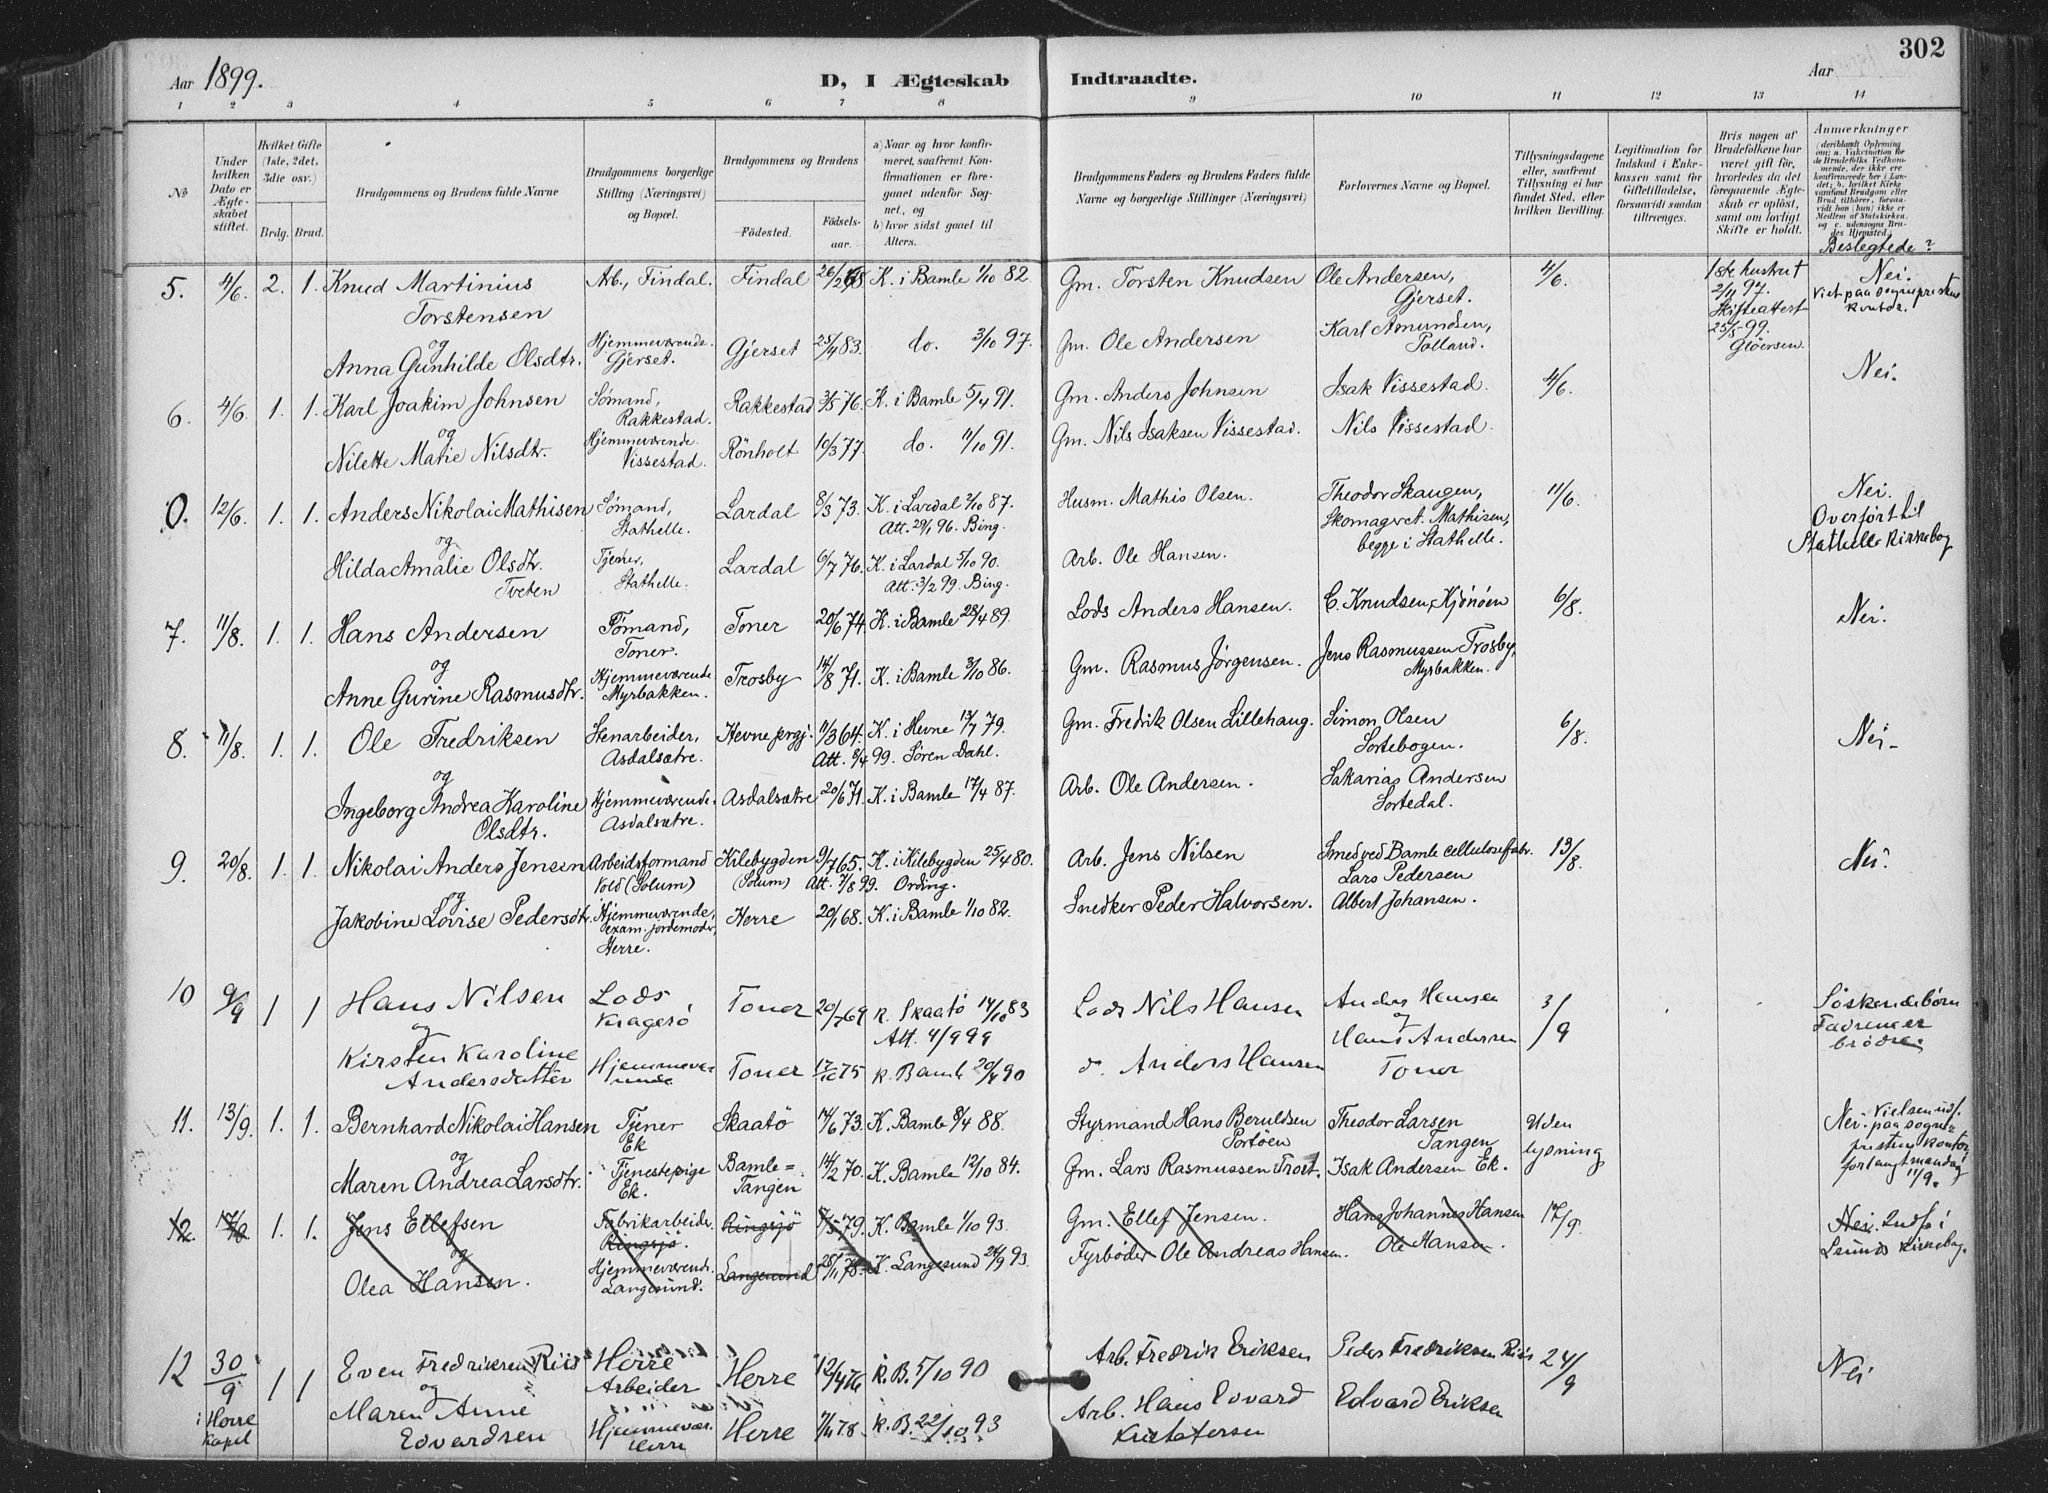 302
Aar 1899.
D, I Ægteskab Indtraadte.
Aar
1 2 3 4 5 6 7 8 9 10 11 12 13 14
No
Under hvilken Dato er Ægteskabet stiftet.
Hvilket Gifte (1ste, 2det, 3die osv.)
Brdg. Brud.
Brudgommens og Brudens fulde Navne
Brudgommens borgerlige Stilling (Næringsvei) og Bopæl.
Brudgommens og Brudens
Födested.
Födselsaar.
a) Naar og hvor konfirmeret, saafremt Konfirmationen er foregaaet udenfor Sognet, og
b) hvor sidst gaaet til Alters.
Brudgommens Faders og Brudens Faders fulde Navne og borgerlige Stillinger (Næringsvei)
Forlovernes Navne og Bopæl.
Tillysningsdagene eller, saafremt Tillysning ei har fundet Sted, efter hvilken Bevilling.
Legitimation for Indskud i Enkekassen samt for Giftetilladelse, forsaavidt saadan tiltrænges.
Hvis nogen af Brudefolkene har været gift för, hvorledes da det foregaaende Ægteskab er oplöst, samt om lovligt Skifte er holdt.
Anmærkninger (deriblandt Oplysning om: a. Vakcination for de Brudefolks Vedkommende, der ikke ere konfirmerede her i Landet; b. hvilket Kirkesamfund Brudgom eller Brud tilhörer, forsaavidt han (hun) ikke er Medlem af Statskirken, og c. udensogns Brudes Hjemsted.
Beslegtede?
5. 4/6. 2. 1. Knud Martinius Arb., Findal. Findal 26/2 68 K. i Bamle 1/10 82 Gm. Torsten Knudsen Ole Andersen, 4/6. 1ste hustru † Nei.
Torstensen Gjerset. 2/11 97. Viet paa sogneprestens
og Hjemmeværende. Karl Amundsen, Skifteattest kontor.
Anna Gunhilde Olsdtr. Gjerset. Gjerset 25/4 83. do. 3/10 97. Gm. Ole Andersen Tolland. 25/5-99.
Gloersen.
6. 4/6. 1. 1. Karl Joakim Johnsen Sømand, Rakkestad 3/5 76. K. i Bamle 5/4 91. Gm. Anders Johnsen Isak Vissestad. 4/6. Nei.
og Rakkestad.
Nilette Marie Nilsdtr. Hjemmeværende. Rönholt 10/3 77. do. 11/10 91. Gm. Nils Isaksen Vissestad. Nils Vissestad.
Vissestad.
O. 12/6. 1. 1. Anders Nikolai Mathisen Sømand, Lardal 8/3 73. K. i Lardal 2/10 87. Husm. Mathis Olsen. Theodor Skaugen, 11/6. Nei.
og Stathelle. Att. 29/1 96. Bing. Skomager t. Mathisen, Overført til
begge i Stathelle. Stathelle kirkebog
Hilda Amalie Olsdtr. Tjener, Lardal 6/7 76. K. i Lardal 5/10 90. Arb. Ole Hansen.
Tveten Stathelle. Att. 3/2 99. Bing.
7. 11/8. 1. 1. Hans Andersen Sømand, Toner 20/6 74. K. i Bamle 28/4 89. Lods Anders Hansen. C. Knudsen, Kjönöen 6/8. Nei.
og Toner.
Anne Gurine Rasmusdtr. Hjemmeværende Trosby 14/8 71. K. i Bamle 3/10 86. Gm. Rasmus Jörgensen. Jens Rasmussen Trosby,
Myrbakken. Myrbakken.
8. 11/8. 1. 1. Ole Fredriksen Stenarbeider, Hevne prgj. 11/3 64. K. i Hevne 13/7 79. Gm. Fredrik Olsen Lillehaug. Simon Olsen 6/8. Nei.
og Asdalsætre. Att. 8/4 99. Sören Dahl. Sortebogen.
Ingeborg Andrea Karoline Hjemmeværende. Asdalsætre 20/6 71. K. i Bamle 17/4 87. Arb. Ole Andersen. Sakarias Andersen
Olsdtr. Asdalsætre. Sortedal.
9. 20/8. 1. 1. Nikolai Anders Jensen Arbeidsformand Kilebygden 9/7 65. K. i Kilebygden 25/4 80. Arb. Jens Nilsen Smed ved Bamle cellulosefabr. 13/8. Nei.
og Vold (Solum) (Solum) Att. 7/8 99. Ording. Lars Pedersen
Jakobine Lovise Pedersdtr. Hjemmeværende, Herre 20/1 68. K. i Bamle 1/10 82. Snedker Peder Halvorsen. Albert Johansen.
exam. jordemoder,
Herre.
10 9/9 1 1 Hans Nilsen Lods Toner 20/7 69 K. Skaatö 14/10 83 Lods Nils Hansen Anders Hansen 3/9 Söskendebörn
og Kragerö Att. 4/9 99 og Fædrene er
Kirsten Karoline Hjemmevæ- Toner 17/10 75 K. Bamle 20/4 90 d. Anders Hansen Hans Andersen brödre
Andersdatter rende Toner
11. 13/9. 1. 1. Bernhard Nikolai Hansen Tjener Skaatö 14/6 73. K. Bamle 8/4 88. Styrmand Hans Beruldsen Theodor Larsen Uden Nei. Vielsen udf.
og Ek Portöen Tangen lysning paa sogneprestens kontor
Maren Andrea Larsdtr. Tjenestepige Bamle= 14/2 70. K. Bamle 12/10 84. Gm. Lars Rasmussen Isak Andersen Ek. forlangt mandag
Ek. Tangen 11/9.
12. 17/9 1. 1. Jens Ellefsen Fabrikarbeider. Ringsjö 5/5 79. K. Bamle 1/10 93. Gm. Ellef Jensen. Hans Johannes Hansen 17/9. Nei. Indf. i
og Ringsjö. Ole Hansen. Lsunds kirkebog.
Olea Hansen. Hjemmeværende. Langesund 25/11 78. K. Langesund 24/9 93. Fyrböder Ole Andreas Hansen.
Langesund.
12 30/9 1 1 Even Fredriksen Riis Herre Herre 12/4 76 K. B. 5/10 90 Arb. Fredrik Eriksen Peder Fredriksen Riis 24/9 Nei
i Herre og Arbeider
Kapel Maren Anne Hjemmevær. Herre 7/11 78 K. B. 22/10 93 Arb. Hans Edvard Edvard Eriksen
Edvardsen Herre